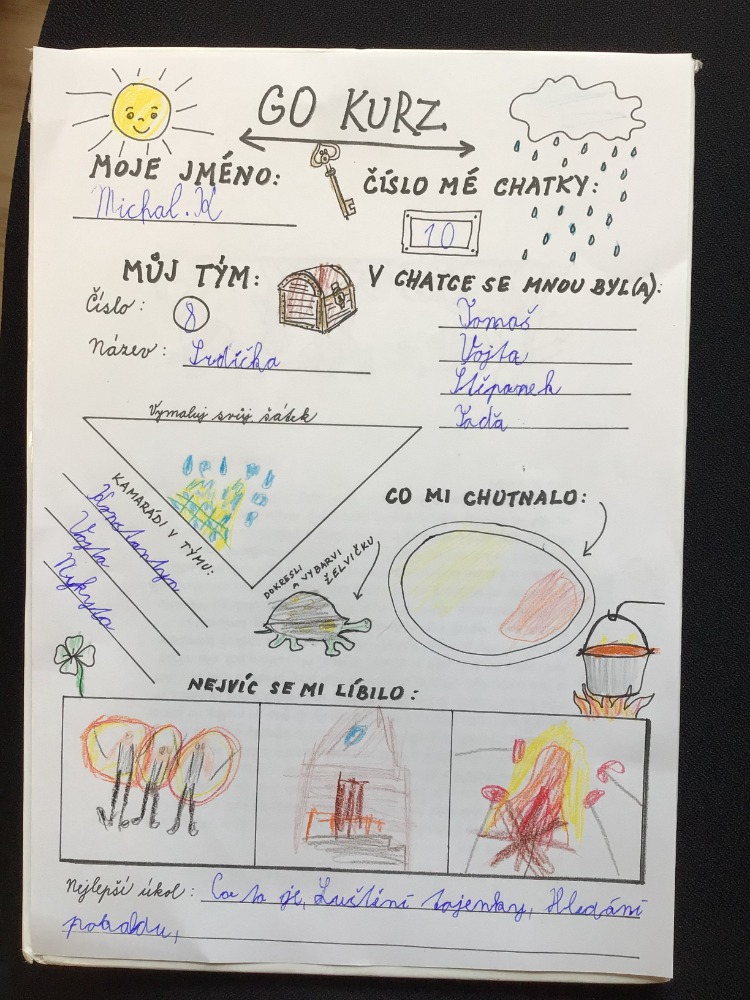 GO KURZ
MOJE JMÉNO:
Michal. K
ČÍSLO MÉ CHATKY:
10
MŮJ TÝM:
Číslo: 8
Název: Srdíčka
V CHATCE SE MNOU BYL(A):
Tomáš
Vojta
Štěpánek
Jada
Vymaluj svůj šátek
KAMARÁDI V TÝMU:
Konstantyn
Vojta
Nykyta
DOKRESLI
A VYBARVI
ŽELVIČKU
CO MI CHUTNALO:
NEJVÍC SE MI LÍBILO:
Nejlepší úkol: Co to je, Luštění tajenky, Hledání
pokladu,